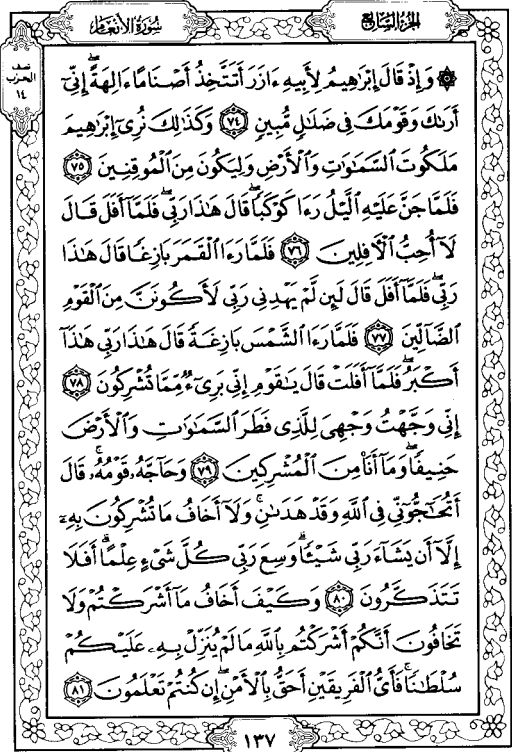 الجزء السابع
سورة الأنعام
نصف
الحزب
١٤
۞ وَإِذْ قَالَ إِبْرَٰهِيمُ لِأَبِيهِ ءَازَرَ أَتَتَّخِذُ أَصْنَامًا ءَالِهَةً ۖ إِنِّىٓ
أَرَىٰكَ وَقَوْمَكَ فِى ضَلَٰلٍ مُّبِينٍ ٧٤ وَكَذَٰلِكَ نُرِىٓ إِبْرَٰهِيمَ
مَلَكُوتَ السَّمَٰوَٰتِ وَالْأَرْضِ وَلِيَكُونَ مِنَ الْمُوقِنِينَ ٧٥
فَلَمَّا جَنَّ عَلَيْهِ الَّيْلُ رَءَا كَوْكَبًا ۖ قَالَ هَٰذَا رَبِّى ۖ فَلَمَّآ أَفَلَ قَالَ
لَآ أُحِبُّ الْآفِلِينَ ٧٦ فَلَمَّا رَءَا الْقَمَرَ بَازِغًا قَالَ هَٰذَا
رَبِّى ۖ فَلَمَّآ أَفَلَ قَالَ لَئِن لَّمْ يَهْدِنِى رَبِّى لَأَكُونَنَّ مِنَ الْقَوْمِ
الضَّآلِّينَ ٧٧ فَلَمَّا رَءَا الشَّمْسَ بَازِغَةً قَالَ هَٰذَا رَبِّى هَٰذَآ
أَكْبَرُ ۖ فَلَمَّآ أَفَلَتْ قَالَ يَٰقَوْمِ إِنِّى بَرِىٓءٌ مِّمَّا تُشْرِكُونَ ٧٨
إِنِّى وَجَّهْتُ وَجْهِىَ لِلَّذِى فَطَرَ السَّمَٰوَٰتِ وَالْأَرْضَ
حَنِيفًا ۖ وَمَآ أَنَا۠ مِنَ الْمُشْرِكِينَ ٧٩ وَحَآجَّهُۥ قَوْمُهُۥ ۚ قَالَ
أَتُحَٰٓجُّوٓنِّى فِى اللَّهِ وَقَدْ هَدَىٰنِ ۚ وَلَآ أَخَافُ مَا تُشْرِكُونَ بِهِۦٓ
إِلَّآ أَن يَشَآءَ رَبِّى شَيْـًٔا ۗ وَسِعَ رَبِّى كُلَّ شَىْءٍ عِلْمًا ۗ أَفَلَا
تَتَذَكَّرُونَ ٨٠ وَكَيْفَ أَخَافُ مَآ أَشْرَكْتُمْ وَلَا
تَخَافُونَ أَنَّكُمْ أَشْرَكْتُم بِاللَّهِ مَا لَمْ يُنَزِّلْ بِهِۦ عَلَيْكُمْ
سُلْطَٰنًا ۚ فَأَىُّ الْفَرِيقَيْنِ أَحَقُّ بِالْأَمْنِ ۖ إِن كُنتُمْ تَعْلَمُونَ ٨١
١٣٧